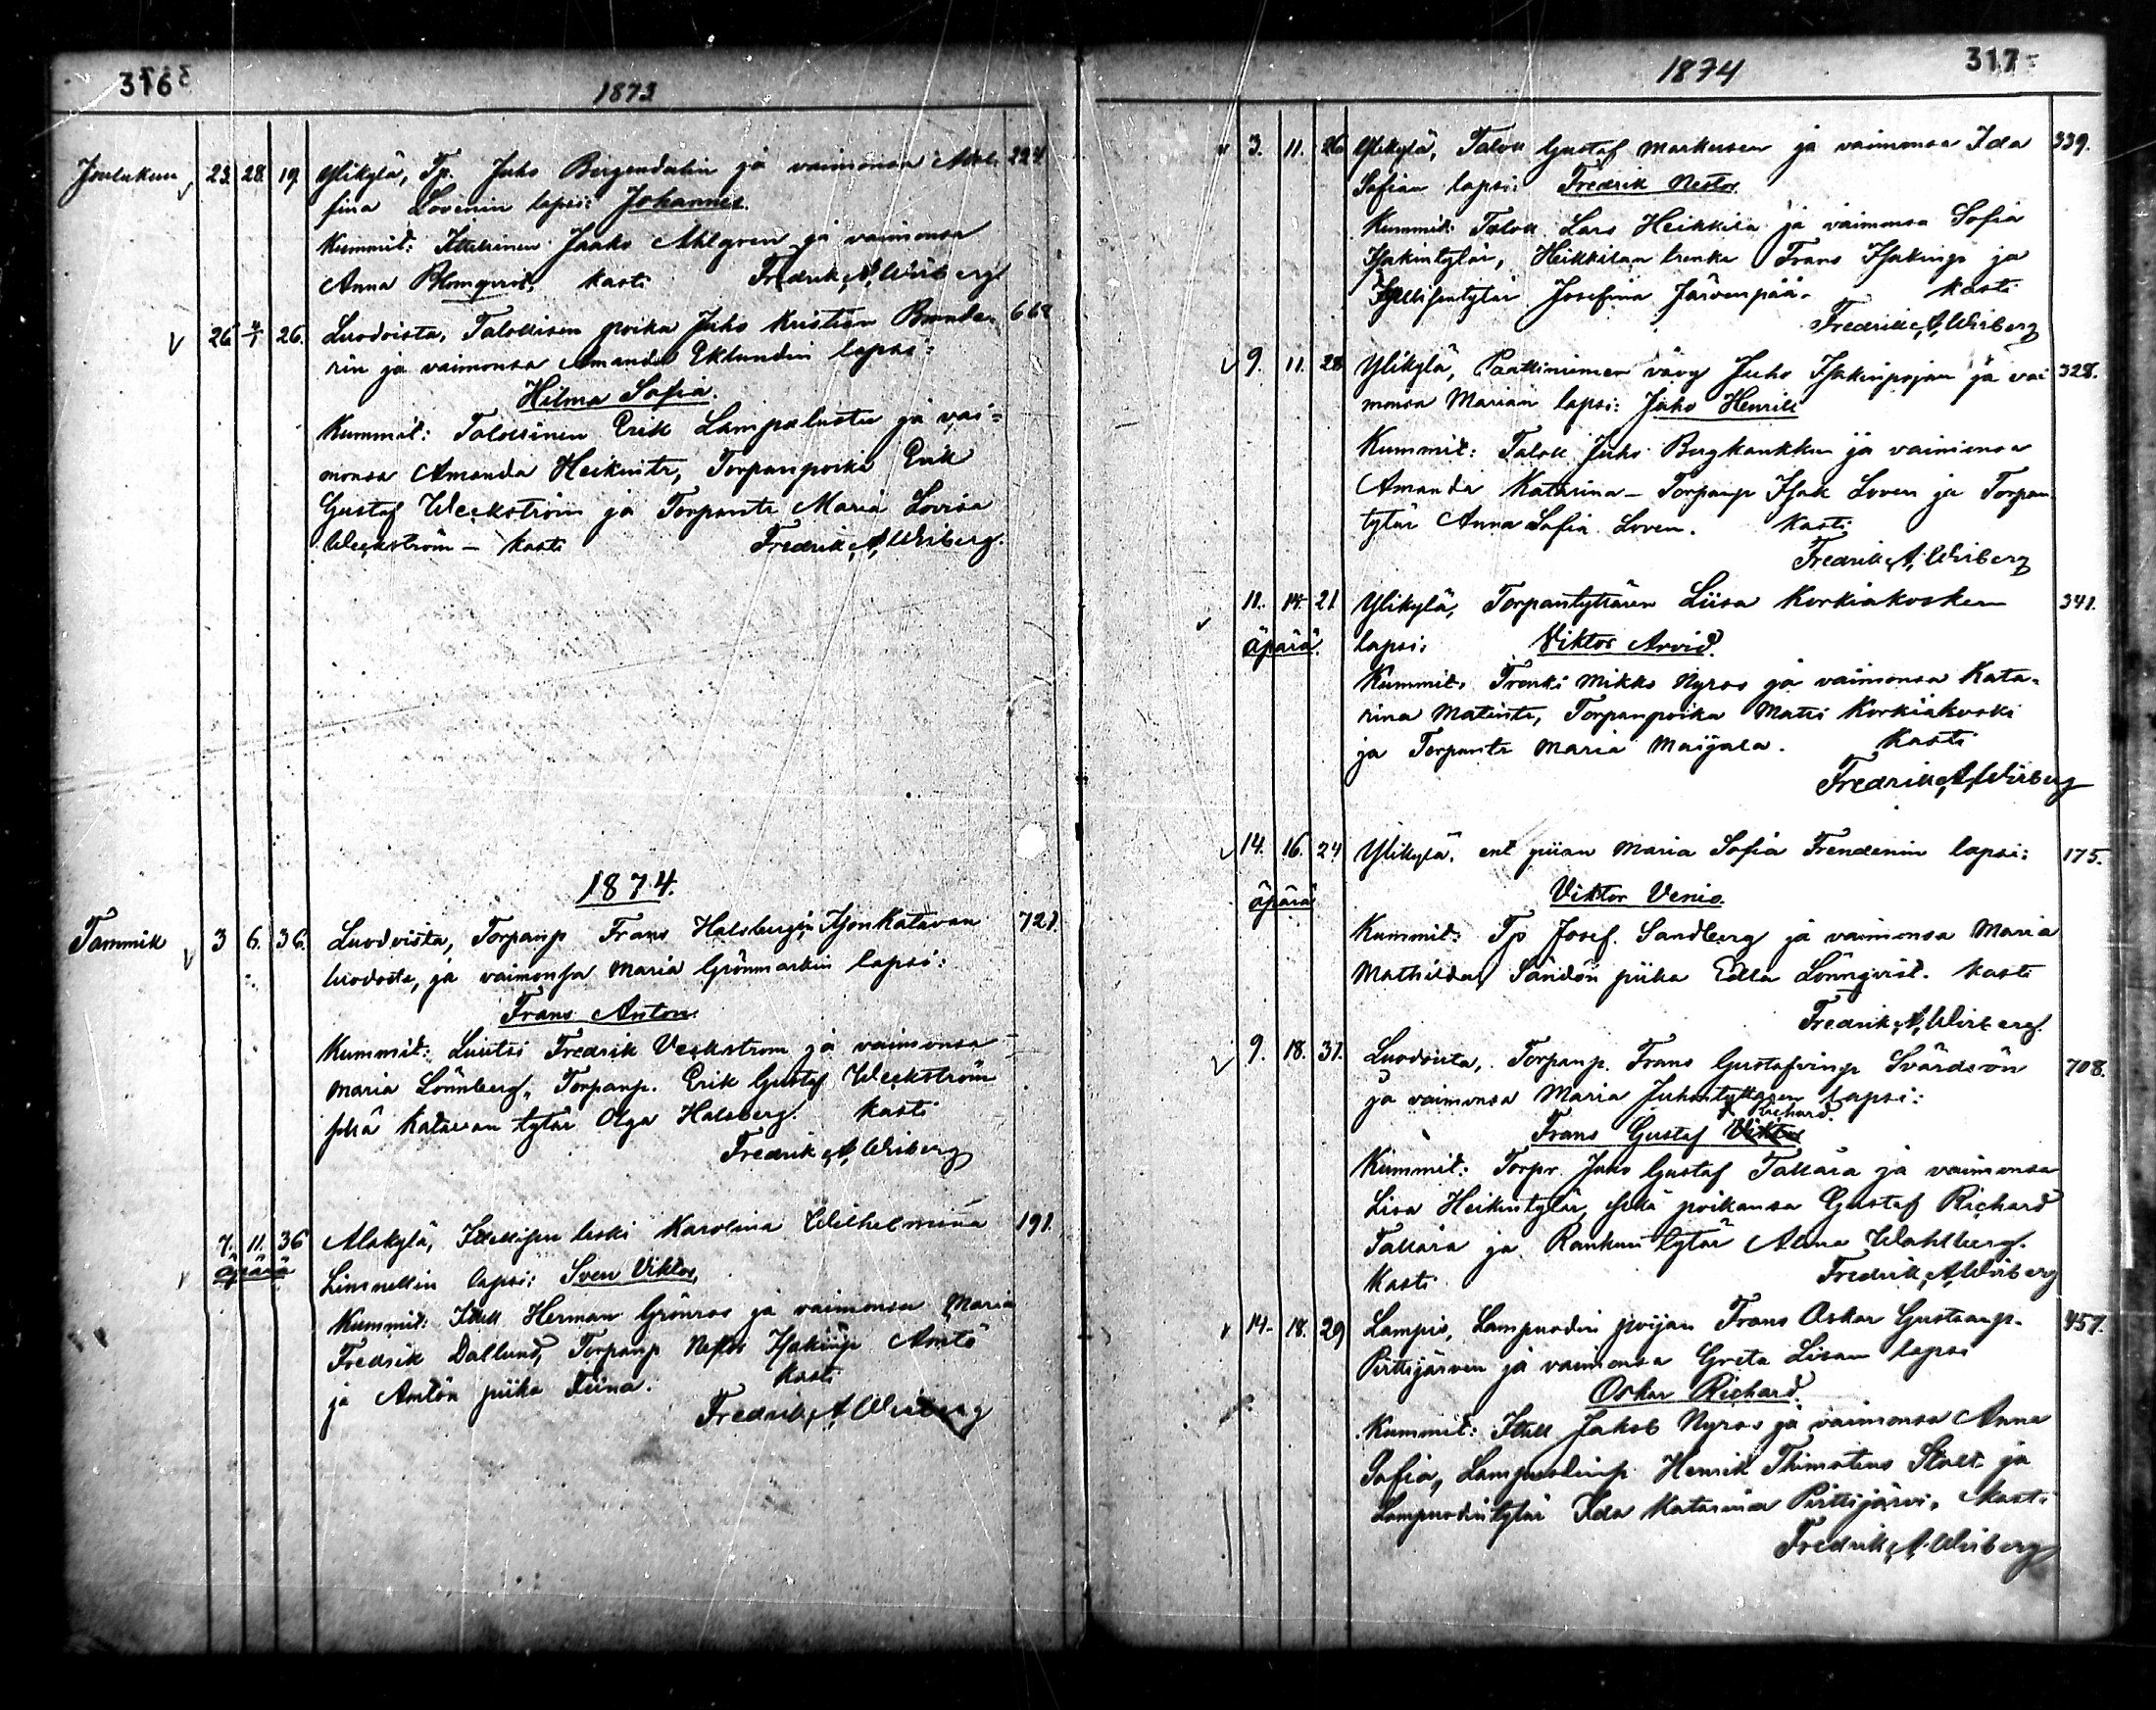 316
1873
Joulukuu 23. 28. 19. Ylikylä, Tp. Juho Bergendalin ja vaimonsa 224
fina Lovenin lapsi: Johannes.
Kummit: Itsellinen Jaako Ahlgren ja vaimonsa
Anna Blomqvist, kasti Fredrik A. Wirberg
26 4/1 26. Luodoista, Talollisen poika Juho Kristian 668
rin ja vaimonsa Amanda Eklundin lapsi:
Hilma Sofia.
Kummit: Talollinen Erik Lampaluoto ja vai=
monsa Amanda Heikintr, Torpanpoika Erik
Gustaf Weckström ja Torpantr Maria Lovisa
Weckström – kasti Fredrik A. Wirberg.
1874.
Tammik 3 6. 36. Luodoista, Torpanp Frans Halsbergin Katavan 721
luodosta, ja vaimonsa Maria Grönmarkin lapsi:
Frans Anton.
Kummit: Luutsi Fredrik Veckstrom ja vaimonsa
Maria Lönnberg, Torpanp. Erik Gustaf Weckström
sekä Katavan tytär Olga Halsberg. kasti
Fredrik A. Wirberg
7. 11. 36 Alakylä, leski Karolina Wilhelmina 191.
äpärä Limnellin lapsi: Sven Viktor,
Kummit: Itsell Herman Grönroos ja vaimonsa Maria
Fredrik Dallund, Torpanp Isakinp Anttö
ja Antön piika Tiina. kasti
Fredrik A. Wirberg
1874
317
3. 11. 26 Ylikylä, Talon Gustaf Markusen ja vaimonsa Ida 339.
Sofian lapsi: Fredrik Nestor.
Kummit: Taloll. Lars Heikkilä ja vaimonsa Sofia
Isakintytär, Heikkilän trenki Frans Isakinp ja
Josefina Järvenpää. kasti
Fredrik A. Wirberg
9. 11. 28 Ylikylä, vävy Juho Isakinpojan ja vai 328.
monsa Marian lapsi: Juho Henrik
Kummit: Taloll Juho Bergkankkun ja vaimonsa
Amanda Katarina – Torpanp Isak Loven ja Torpan
tytär Anna Sofia Loven. kasti
Fredrik A. Wirberg
11. 14. 21 Ylikylä, Torpantyttären Liisa Korkiakosken 341.
äpärä. lapsi: Viktor Arvid.
Kummit: Trenki Mikko Nyroos ja vaimonsa Kata-
rina Matintr, Torpanpoika Matti Korkiakoski
ja Torpantr Maria Maijala. kasti
Fredrik A. Wirberg
14. 16. 24 Ylikylä, ent piian Maria Sofia Frendenin lapsi: 175.
äpärä Viktor Venio.
Kummit: Tp Josef. Sandberg ja vaimonsa Maria
Mathilda, Sandön piika Edla Lönnqvist. kasti
Fredrik A. Wirberg.
9. 18. 31. Luodoista, Torpanp. Frans Gustafvinp Svärdsön 708.
ja vaimonsa Maria Juhontyttären lapsi:
Richard
Frans Gustaf Viktor
Kummit: Torpr. Juho Gustaf Tallära ja vaimonsa
Lisa Heikintytär, sekä poikansa Gustaf Richard
Tallära ja Rankun tytär Anna Wahlberg.
kasti Fredrik A. Wirberg
14. 18. 29 Lampis, Lampuodin pojan Frans Oskar Gustaanp. 457.
Pirttijärven ja vaimonsa Greta Lisan lapsi
Oskar Richard.
Kummit: Itsell Jakob Nyroos ja vaimonsa Anna
Sofia, Lampuodinp Henrik Thimoteus Stolt ja
Lampuodintytär Ida Katarina Pirttijärvi, kasti
Fredrik A. Wirberg